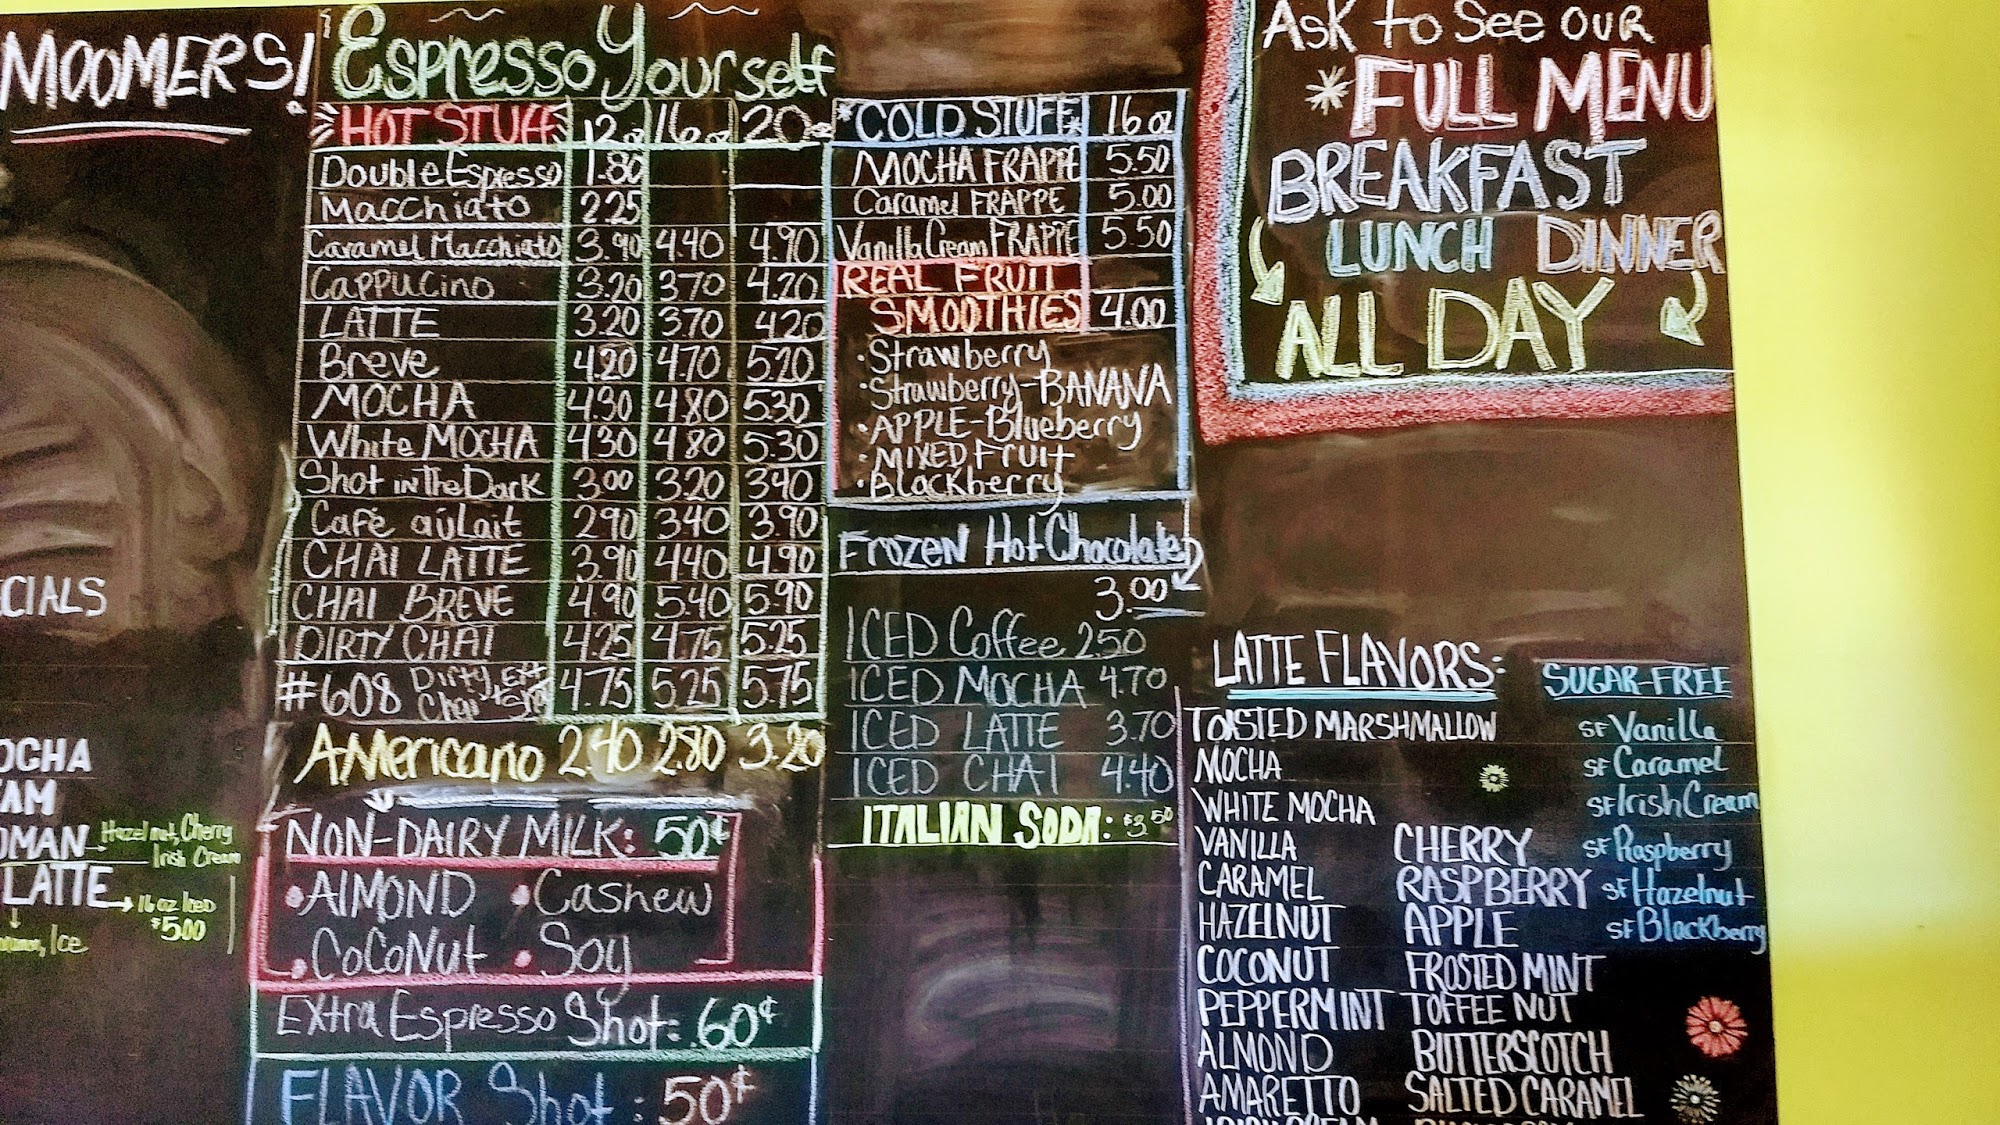 MOOMERS!
CIALS
OCHA
OMAN Hazelnut, Cherry
Irish Cream
LATTE 16 oz Iced
$5.00
Ice
Espresso Yourself
HOT STUFF 12oz 16oz 20oz
Double Espresso 1.80
Macchiato 2.25
Caramel Macchiato 3.90 4.40 4.90
CAPPUCINO 3.20 3.70 4.20
LATTE 3.20 3.70 4.20
Breve 4.20 4.70 5.20
MOCHA 4.30 4.80 5.30
White MOCHA 4.30 4.80 5.30
Shot IN The Dark 3.00 3.20 3.40
Café aúLait 2.90 3.40 3.90
CHAI LATTE 3.90 4.40 4.90
CHAI BREVE 4.90 5.40 5.90
DIRTY CHAI 4.25 4.75 5.25
#608 Dirty Chai 4.75 5.25 5.75
AMericano 2.40 2.80 3.20
NON-DAIRY MILK: 50¢
•AlMOND •Cashew
•CoCoNut •Soy
Extra Espresso Shot: .60¢
FLAVOR Shot: 50¢
*COLD STUFF* 16 oz
MOCHA FRAPPE 5.50
Caramel FRAPPE 5.00
Vanilla Cream FRAPPE 5.50
REAL FRUIT
SMOOTHIES 4.00
•Strawberry
•Strawberry-BANANA
•APPLE-Blueberry
•MIXED FRUIT
•Blackberry
Frozen Hot Chocolate
3.00
ICED Coffee 2.50
ICED MOCHA 4.70
ICED LATTE 3.70
ICED CHAI 4.40
ITALIAN SODA: $3.50
Ask to See our
*FULL MENU
BREAKFAST
LUNCH DINNER
ALL DAY
LATTE FLAVORS:
TOASTED MARSHMALLOW
MOCHA
WHITE MOCHA
VANILLA
CARAMEL
HAZELNUT
COCONUT
PEPPERMINT
ALMOND
AMARETTO
CHERRY
RASPBERRY
APPLE
FROSTED MINT
TOFFEE NUT
BUTTERSCOTCH
SALTED CARAMEL
SUGAR-FREE
SF Vanilla
SF Caramel
SF Irish Cream
SF Raspberry
SF Hazelnut
SF Blackberry